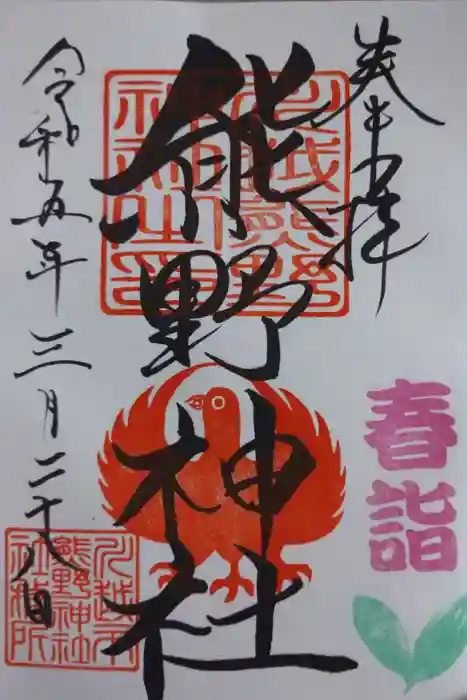 奉拝
川越熊野神社之印
熊野神社
春詣
令和五年三月二十八日
川越市熊野神社社務所